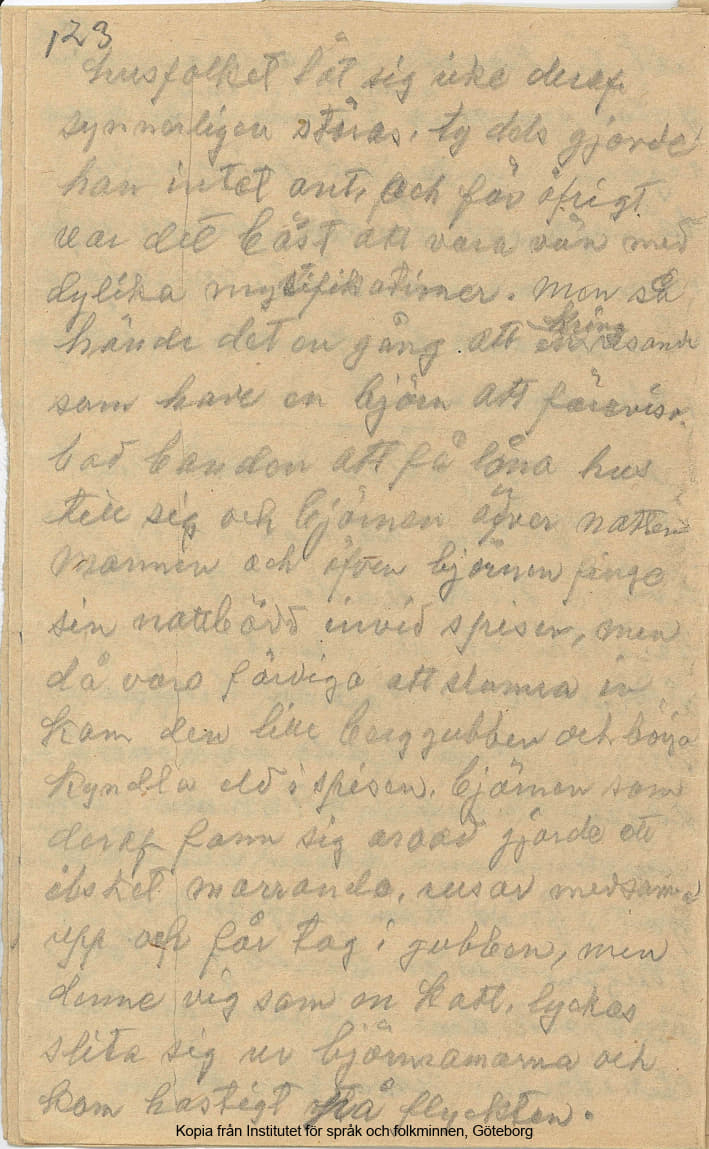 123
husfolket lät sig icke deraf
synnerligen störas, ty dels gjorde
han intet ont, och för öfrigt
var det bäst att vara vän med
dylika mystifikationer. Men så
hände det en gång att en kring resande
som hade en björn att förevisa
bad bonden att få låna hus
till sig och björnen öfver natten
Mannen och äfven björnen finge
sin nattbädd invid spisen, men
då voro färdiga att slumra in
kom den lille berggubben och börja
kyndla eld i spisen. Björnen som
deraf fann sig oroad gjorde ett
ilsket morrande, rusar medsamma
upp och får tag i gubben, men
denne vig som en katt, lyckas
slita sig ur björnramarna och
kom hastigt på flyckten.
Kopia från Institutet för språk och folkminnen, Göteborg